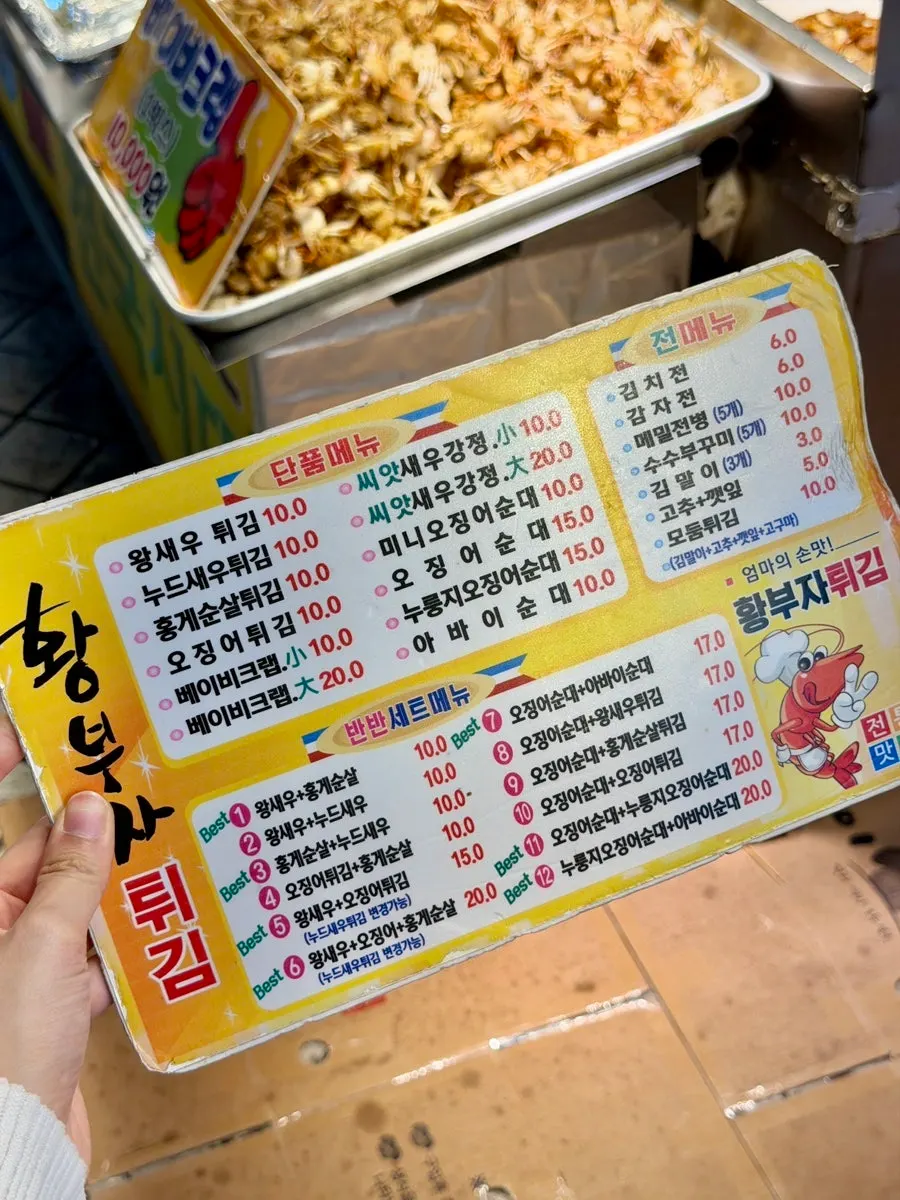 베이비크랩
10,000원
황부자
튀김
단품메뉴
왕새우 튀김 10.0
누드새우튀김 10.0
홍게순살튀김 10.0
오징어튀김 10.0
베이비크랩.小 10.0
베이비크랩.大 20.0
씨앗새우강정.小 10.0
씨앗새우강정.大 20.0
미니오징어순대 10.0
오징어순대 15.0
누룽지오징어순대 15.0
아바이순대 10.0
전메뉴
김치전 6.0
감자전 6.0
메밀전병 (5개) 10.0
수수부꾸미 (5개) 10.0
김말이 (3개) 3.0
고추+깻잎 5.0
모둠튀김 10.0
(김말이+고추+깻잎+고구마)
엄마의 손맛!
황부자튀김
반반세트메뉴
Best 1 왕새우+홍게순살 10.0
2 왕새우+누드새우 10.0
Best 3 홍게순살+누드새우 10.0
4 오징어튀김+홍게순살 10.0
Best 5 왕새우+오징어튀김 15.0
(누드새우튀김 변경가능)
Best 6 왕새우+오징어+홍게순살 20.0
(누드새우튀김 변경가능)
Best 7 오징어순대+아바이순대 17.0
8 오징어순대+왕새우튀김 17.0
9 오징어순대+홍게순살튀김 17.0
10 오징어순대+오징어튀김 17.0
Best 11 오징어순대+누룽지오징어순대 20.0
Best 12 누룽지오징어순대+아바이순대 20.0
전
맛